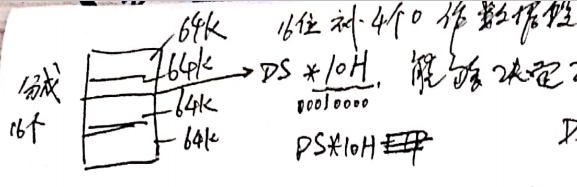 64K
16位补4个0 作数据段
64K
分成
DS *10H. 能够决定
64K
00010000
16个
64K
DS*10H
D